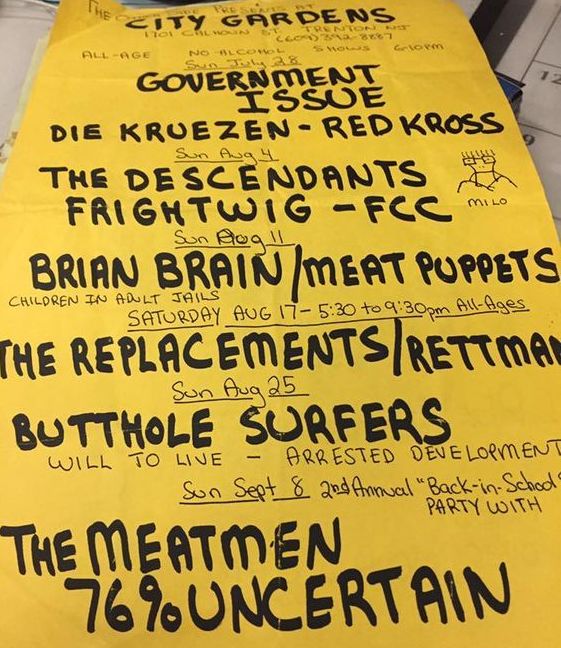 THE PRESENTS AT
CITY GARDENS
1701 CALHOUN ST. TRENTON NJ
(609) 392-8887
ALL-AGE NO-ALCOHOL SHOWS 6-10PM
Sun July 28
GOVERNMENT
ISSUE
DIE KRUEZEN - RED KROSS
Sun Aug 4
THE DESCENDANTS
FRIGHTWIG - FCC
MILO
Sun Aug 11
BRIAN BRAIN/MEAT PUPPETS
CHILDREN IN ADULT JAILS
SATURDAY AUG 17 - 5:30 to 9:30pm All-Ages
THE REPLACEMENTS/RETTMAN
Sun Aug 25
BUTTHOLE SURFERS
WILL TO LIVE - ARRESTED DEVELOPMENT
Sun Sept 8 2nd Annual "Back-in-School"
PARTY WITH
THE MEATMEN
76% UNCERTAIN
12